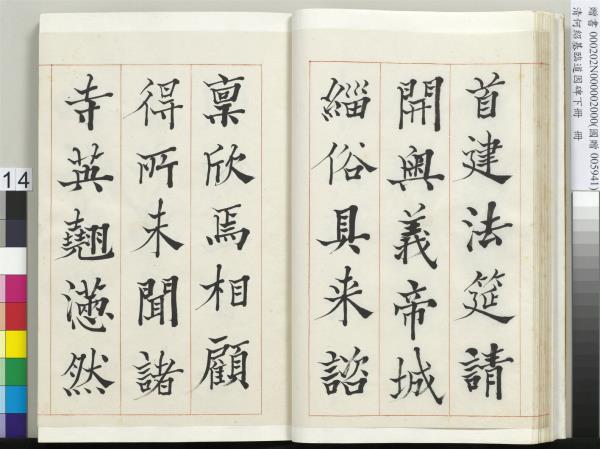 首建法筵請
開奧義帝城
緇俗具来諮
稟欣焉相顧
得所未聞諸
寺英翹懣然
贈書 000202N000002000(國贈 005941)
清何紹基臨道因碑下冊 冊
14